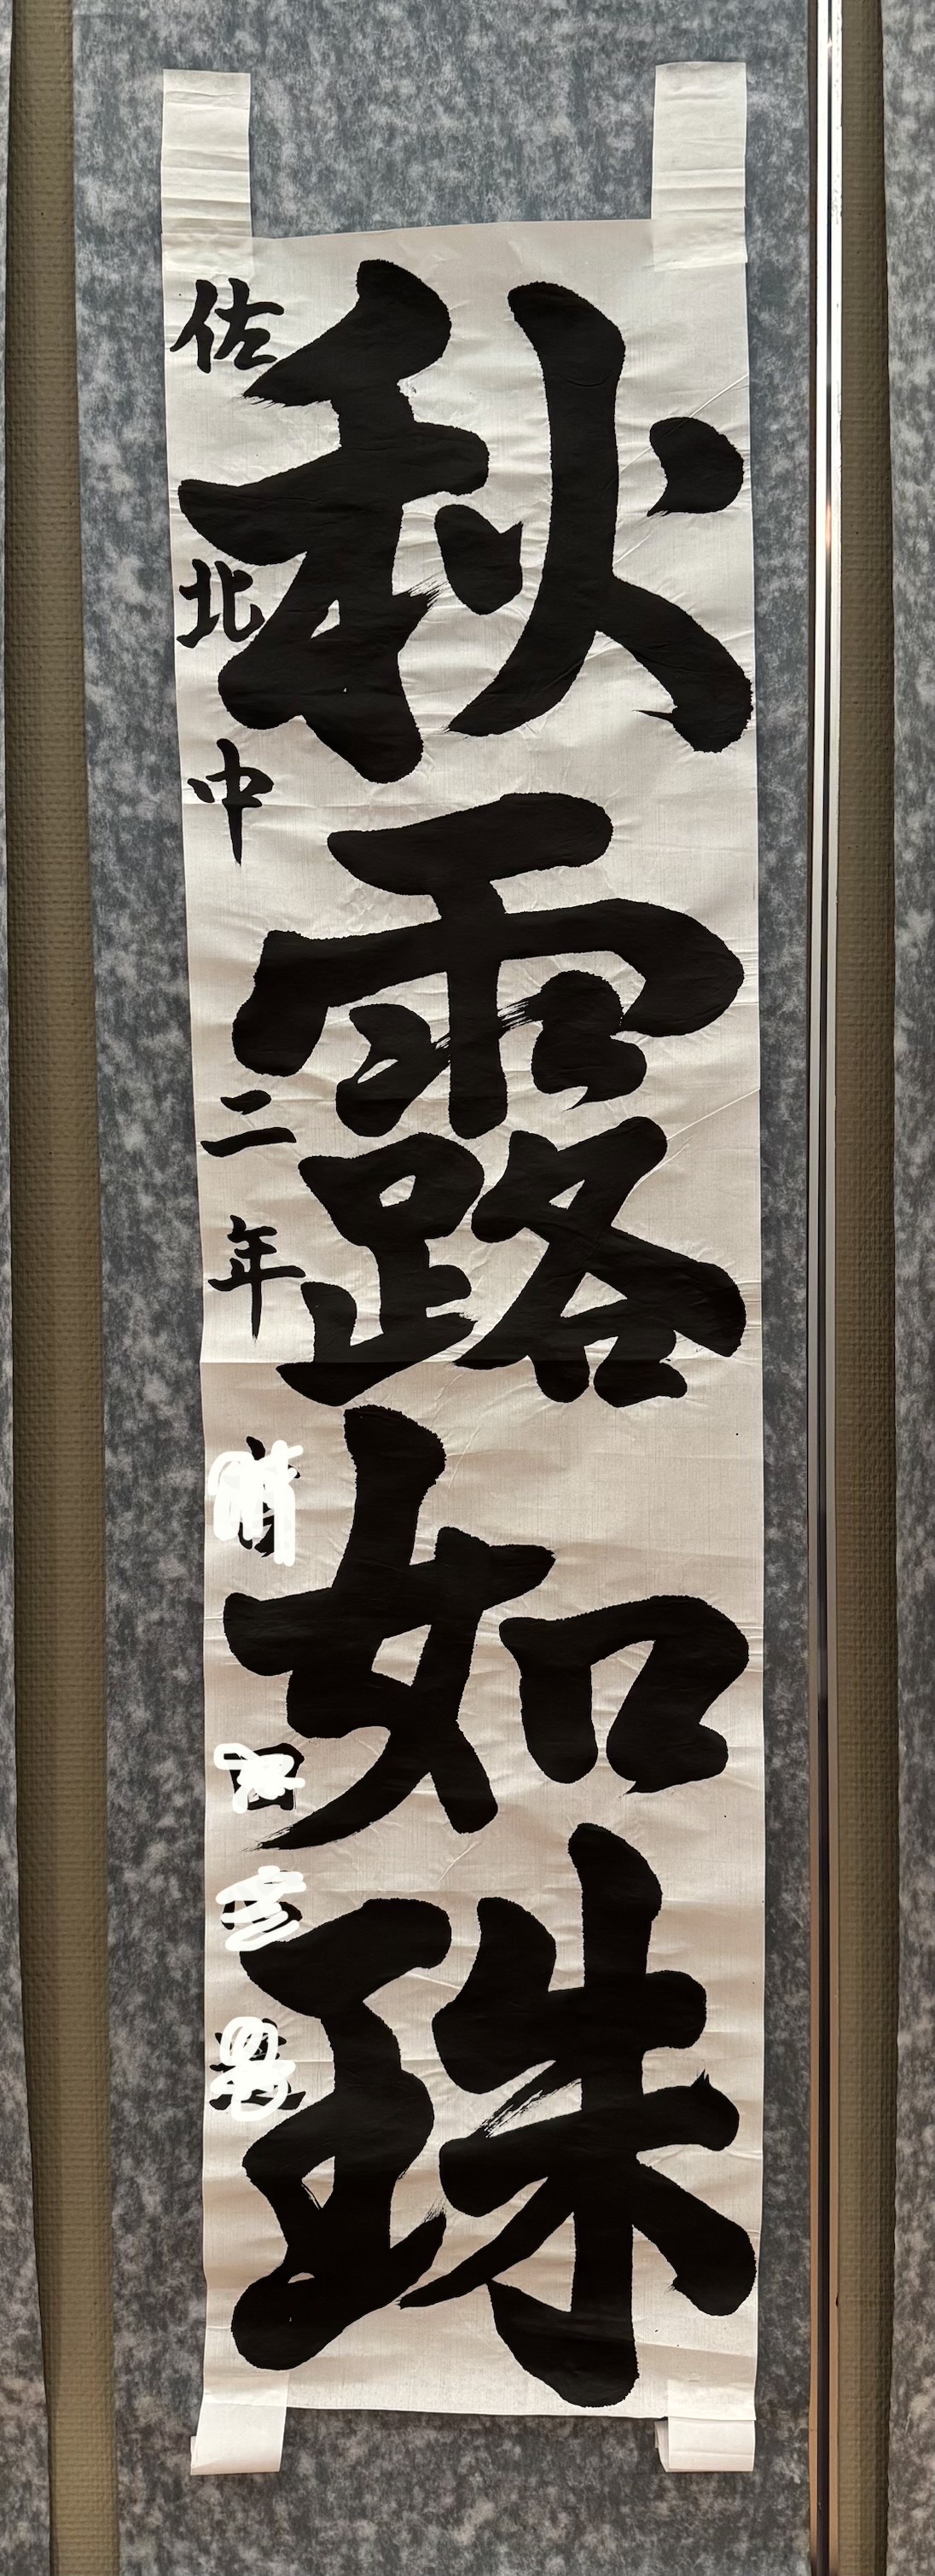 秋露如珠
佐北中二年